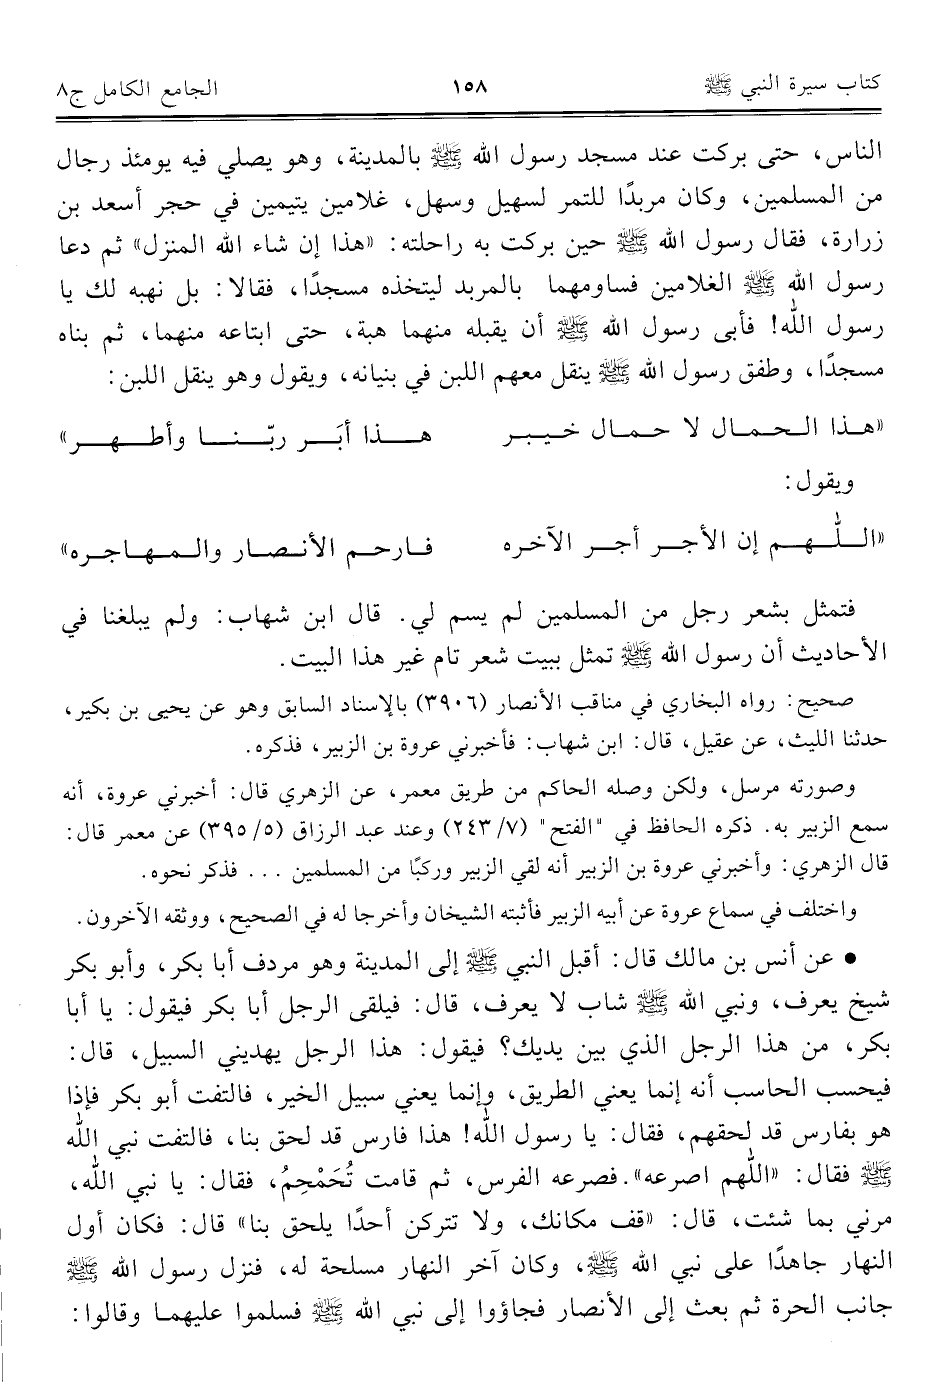 كتاب سيرة النبي ﷺ ١٥٨ الجامع الكامل ج٨
الناس، حتى بركت عند مسجد رسول الله ﷺ بالمدينة، وهو يصلي فيه يومئذ رجال
من المسلمين، وكان مربدًا للتمر لسهيل وسهل، غلامين يتيمين في حجر أسعد بن
زرارة، فقال رسول الله ﷺ حين بركت به راحلته: «هذا إن شاء الله المنزل» ثم دعا
رسول الله ﷺ الغلامين فساومهما بالمربد ليتخذه مسجدًا، فقالا: بل نهبه لك يا
رسول الله! فأبى رسول الله ﷺ أن يقبله منهما هبة، حتى ابتاعه منهما، ثم بناه
مسجدًا، وطفق رسول الله ﷺ ينقل معهم اللبن في بنيانه، ويقول وهو ينقل اللبن:
«هـذا الـحمـال لا حمـال خيـبـر هــذا أبَــر ربّـنــا وأطـهــر»
ويقول:
«الـلّـهـم إن الأجـر أجـر الآخـره فـارحـم الأنـصـار والـمهـاجـره»
فتمثل بشعر رجل من المسلمين لم يسم لي. قال ابن شهاب: ولم يبلغنا في
الأحاديث أن رسول الله ﷺ تمثل ببيت شعر تام غير هذا البيت.
صحيح: رواه البخاري في مناقب الأنصار (٣٩٠٦) بالإسناد السابق وهو عن يحيى بن بكير،
حدثنا الليث، عن عقيل، قال: ابن شهاب: فأخبرني عروة بن الزبير، فذكره.
وصورته مرسل، ولكن وصله الحاكم من طريق معمر، عن الزهري قال: أخبرني عروة، أنه
سمع الزبير به. ذكره الحافظ في "الفتح" (٧/ ٢٤٣) وعند عبد الرزاق (٥/ ٣٩٥) عن معمر قال:
قال الزهري: وأخبرني عروة بن الزبير أنه لقي الزبير وركبًا من المسلمين ... فذكر نحوه.
واختلف في سماع عروة عن أبيه الزبير فأثبته الشيخان وأخرجا له في الصحيح، ووثقه الآخرون.
• عن أنس بن مالك قال: أقبل النبي ﷺ إلى المدينة وهو مردف أبا بكر، وأبو بكر
شيخ يعرف، ونبي الله ﷺ شاب لا يعرف، قال: فيلقى الرجل أبا بكر فيقول: يا أبا
بكر، من هذا الرجل الذي بين يديك؟ فيقول: هذا الرجل يهديني السبيل، قال:
فيحسب الحاسب أنه إنما يعني الطريق، وإنما يعني سبيل الخير، فالتفت أبو بكر فإذا
هو بفارس قد لحقهم، فقال: يا رسول الله! هذا فارس قد لحق بنا، فالتفت نبي الله
ﷺ فقال: «اللّهم اصرعه». فصرعه الفرس، ثم قامت تُحَمْحِمُ، فقال: يا نبي الله،
مرني بما شئت، قال: «قف مكانك، ولا تتركن أحدًا يلحق بنا» قال: فكان أول
النهار جاهدًا على نبي الله ﷺ، وكان آخر النهار مسلحة له، فنزل رسول الله ﷺ
جانب الحرة ثم بعث إلى الأنصار فجاؤوا إلى نبي الله ﷺ فسلموا عليهما وقالوا: